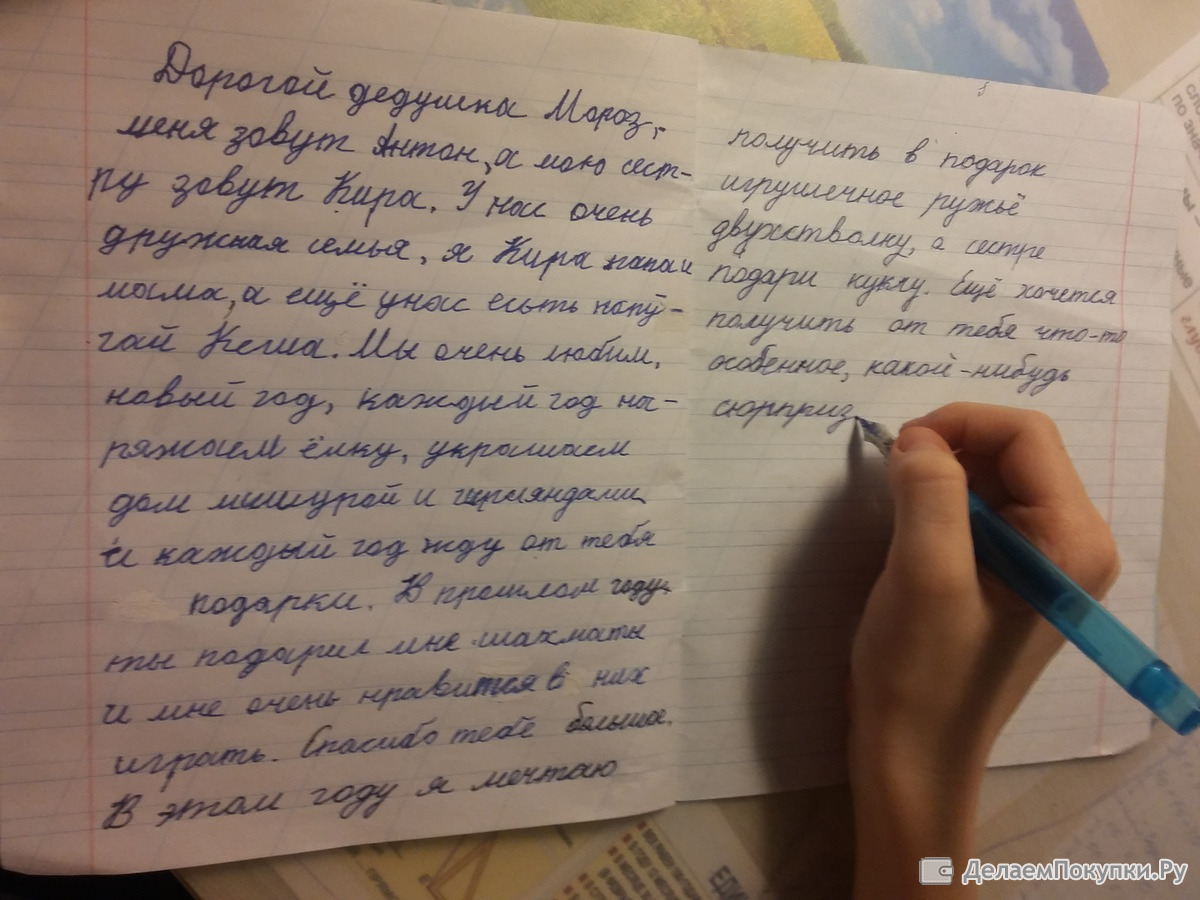 Дорогой дедушка Мороз,
меня зовут Антон, а мою сест-
ру зовут Кира. У нас очень
дружная семья, я Кира папа и
мама, а ещё унас есьть попу-
гай Кеша. Мы очень любим,
новый год, каждый год на-
ряжаем ёлку, украшаем
дом мишурой и гирляндами
и каждый год жду от тебя
подарки. В прошлом году
ты подарил мне шахматы
и мне очень нравится в них
играть. Спасибо тебе большое.
В этом году я мечтаю
получить в подарок
игрушечное ружьё
двухстволку, а сестре
подари куклу. Ещё хочется
получить от тебя что-то
особенное, какой-нибудь
сюрприз
ДелаемПокупки.Ру